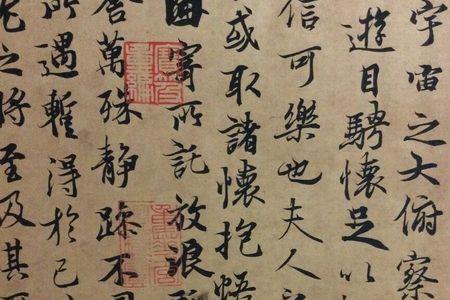 宇宙之大俯察
遊目騁懷足以
信可樂也夫人
或取諸懷抱悟
因寄所託放浪
舍萬殊靜躁不
所遇暫得於己
之將至及其